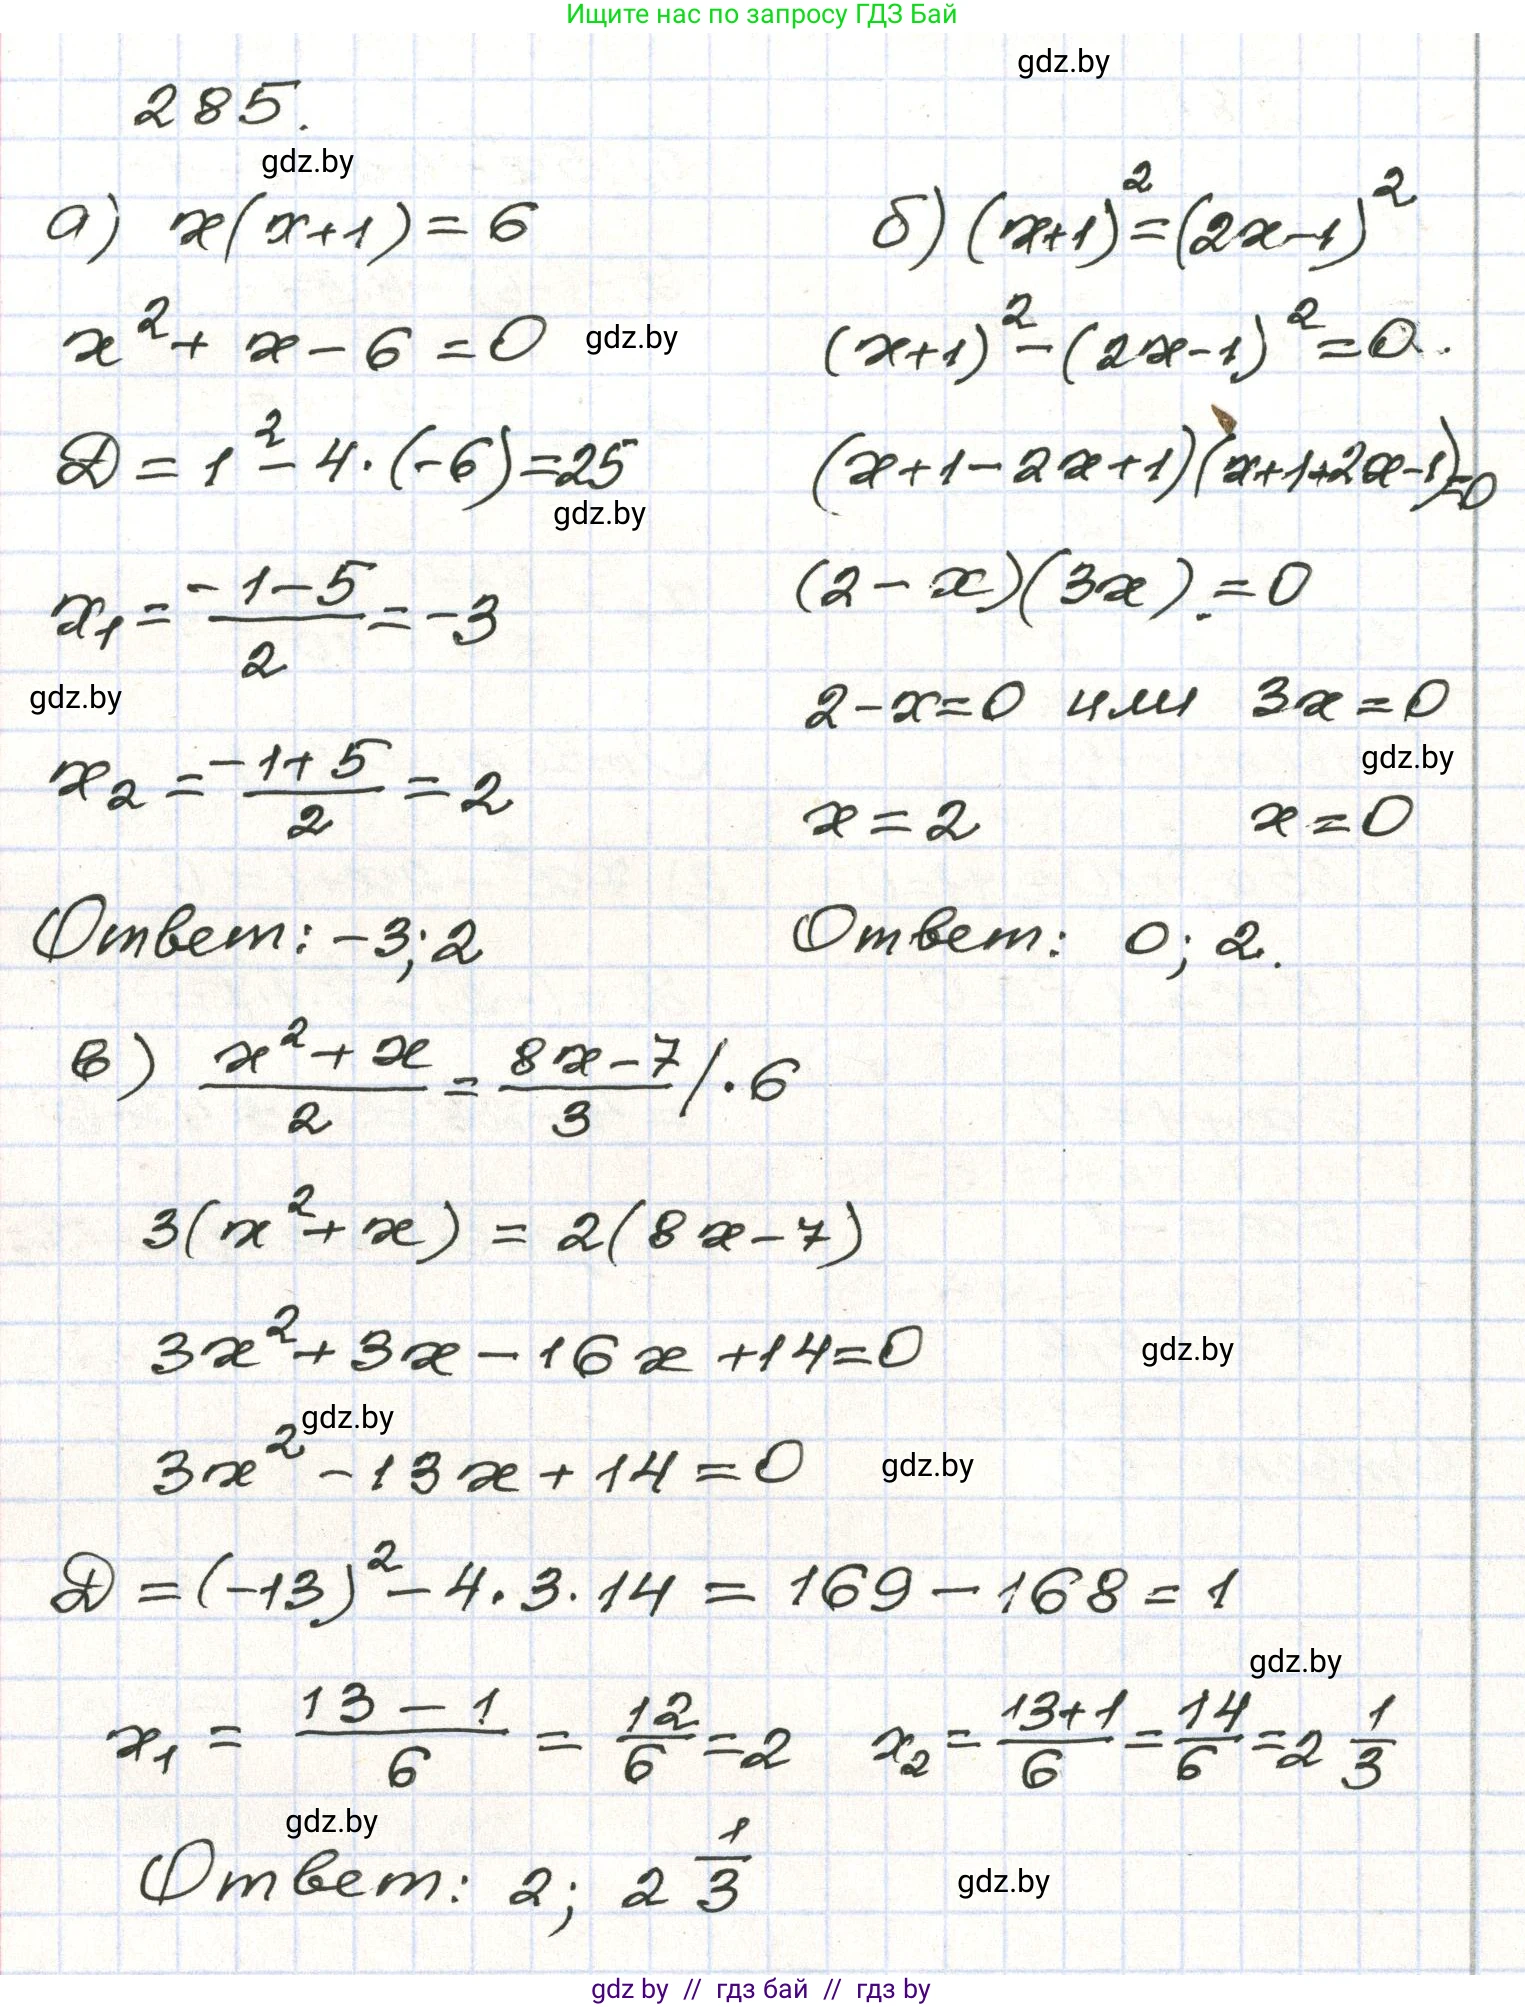 Ищите нас по запросу ГДЗ Бай
gdz.by
285.
gdz.by
а) x(x+1) = 6
x² + x - 6 = 0
gdz.by
D = 1² - 4 · (-6) = 25
gdz.by
x₁ = (-1-5)/2 = -3
gdz.by
x₂ = (-1+5)/2 = 2
Ответ: -3; 2
б) (x+1)² = (2x-1)²
(x+1)² - (2x-1)² = 0.
(x+1-2x+1)(x+1+2x-1)=0
(2-x)(3x).=0
2-x=0 или 3x=0
gdz.by
x=2 x=0
Ответ: 0; 2.
в) (x²+x)/2 = (8x-7)/3 /·6
3(x²+x) = 2(8x-7)
3x²+3x-16x+14=0
gdz.by
gdz.by
3x²-13x+14=0
gdz.by
D = (-13)² - 4·3·14 = 169 - 168 = 1
gdz.by
x₁ = (13-1)/6 = 12/6 = 2 x₂ = (13+1)/6 = 14/6 = 2 1/3
gdz.by
Ответ: 2; 2 1/3
gdz.by
gdz by // гдз бай // гдз by